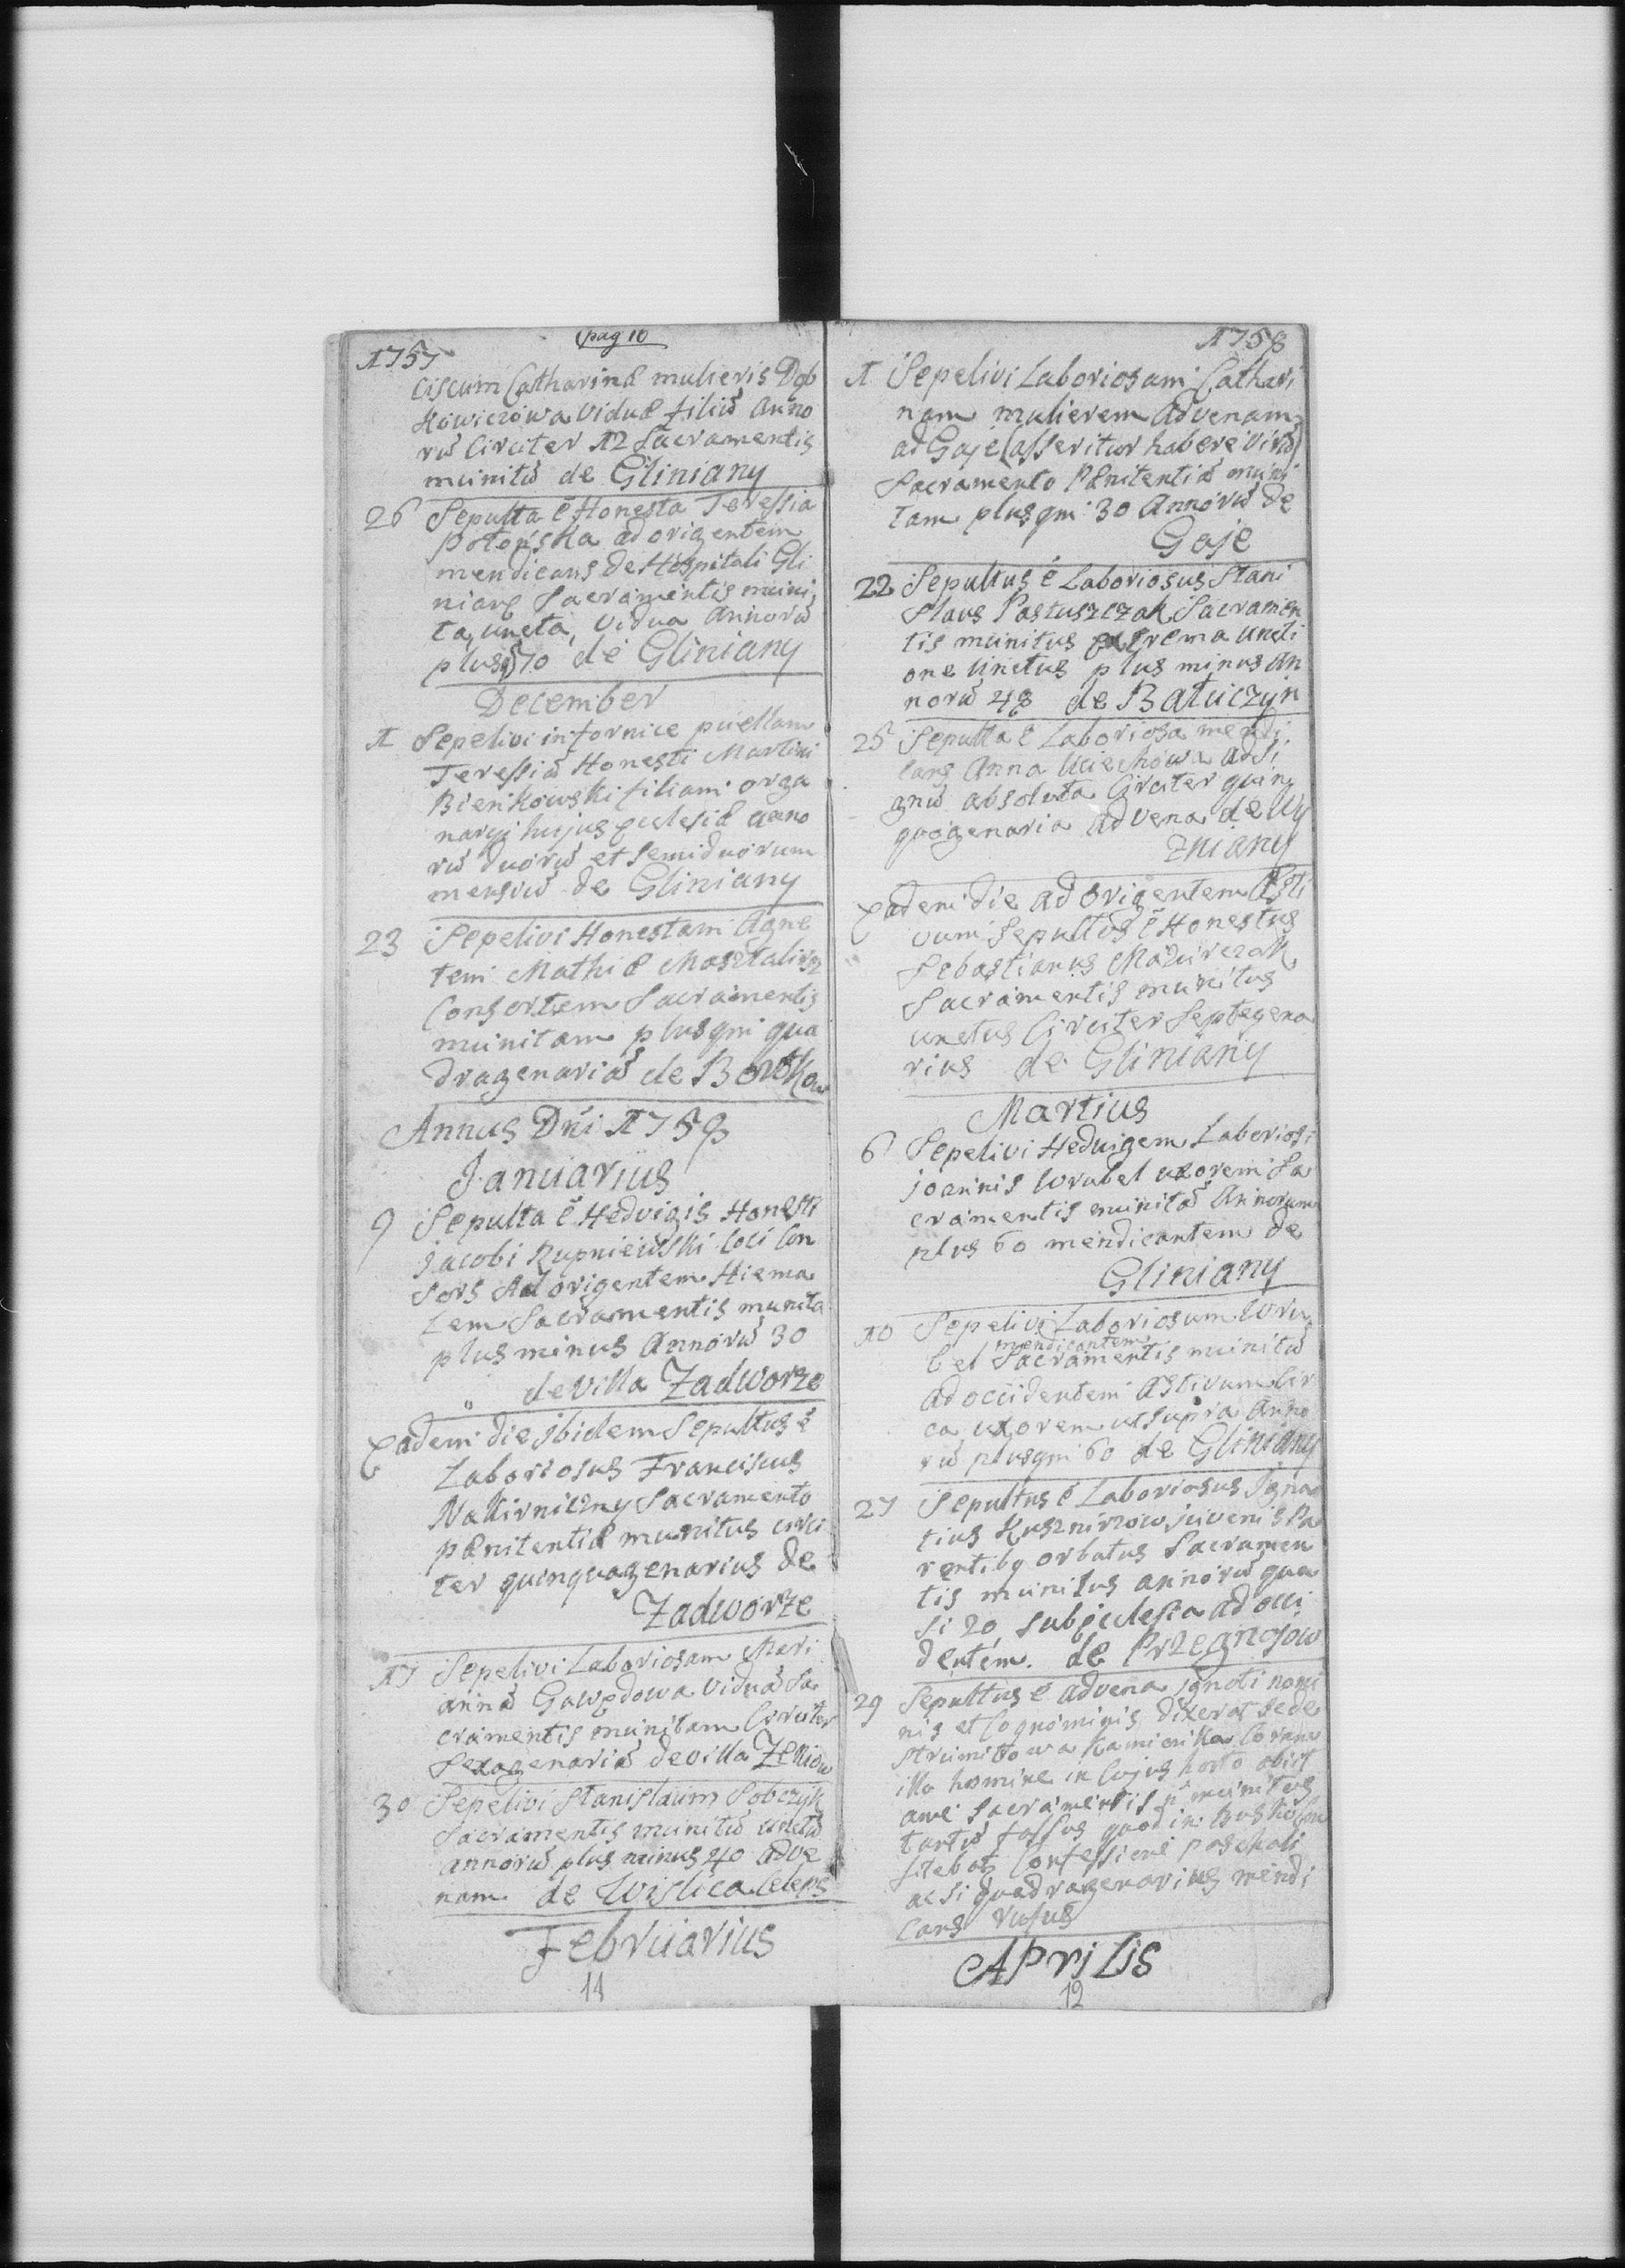 pag 10
1757
ciscum Catharinæ mulieris Dob
kowiczowa viduæ filiū Anno
rū Circiter 12 Sacramentis
munitū de Gliniany
26 Sepulta ē Honesta Teressia
potonska ad origentem
mendicans de Hospitali Gli
niany Sacramentis muni
ta, uncta, vidua Annorū
plus 70 de Gliniany
December
1 Sepelivi in fornice puellam
Teressiā Honesti Martini
Bienkowski filiam orga
naryi hujus Ecclesiæ anno
rū duorū et semi duorum
mensiū de Gliniany
23 Sepelivi Honestam Agne
tem Mathiæ Masztalirz
Consortem Sacramentis
munitam plusqm qua
dragenariā de Bortkow
Annus Dni 1758
Januarius
9 Sepulta ē Hedvigis Honesti
Jacobi Rupniewski loci Con
sors Ad origentem Hiema
lem Sacramentis munita
plus minus Annorū 30
de villa Zadworze
Eadem die ibidem Sepultus ē
Laboriosus Franciscus
Nakirniczny Sacramento
pænitentiæ munitus circi
ter quinquagenarius de
Zadworze
17 Sepelivi Laboriosam Mari
annā Gawędowa Viduā Sa
cramentis munitam Circiter
Sexagenariā de villa Zeniow
30 Sepelivi Stanislaum Sobczyk
Sacramentis munitū unctū
annorū plus minus 40 adve
nam de Wislica Celeps
Februarius
11
1758
1 Sepelivi Laboriosam Cathari
nam mulierem Advenam
ad Gaje (asseritur habere virū)
Sacramento Pænitentiæ muni
tam plusqm 30 Annorū de
Gaje
22 Sepultus ē Laboriosus Stani
slaus Pastuszczak Sacramen
tis munitus extrema uncti
one unctus plus minus an
norū 48 de Batuczyn
25 Sepulta ē Laboriosa mendi
cans Anna Uciechowa ad si
gnū absoluta Circiter quin
quagenaria advena de Uy
zniany
Eadem die ad Origentem Æsti
vum Sepultus ē Honestus
Sebastianus Mazurczak
Sacramentis munitus
unctus Circiter Septegena
rius de Gliniany
Martius
6 Sepelivi Hedvigem Laboriosi
joannis Wrubel uxorem Sa
cramentis munitā Annorum
plus 60 mendicantem de
Gliniany
10 Sepelivi Laboriosum Wru
mendicantem
bel Sacramentis munitū
ad occidentem Æstivum Cir
ca uxorem ut supra anno
rū plusqm 60 de Gliniany
27 Sepultus ē Laboriosus Igna
tius Kusznirzow juvenis Pa
rentibq orbatus Sacramen
tis munitus annorū qua
si 20 sub ecclesia ad occi
dentem. de Przegnojow
29 Sepultus ē advena ignoti nomi
nis et Cognominis, dixerat se de
Strumitowa Kamienka Coram
illo homine in cujus horto obiit
ante Sacramentis n munitus
tantū fassus quod in Busko
Confessione paschali
ac si quadragenarius mendi
cans rufus
Aprilis
12